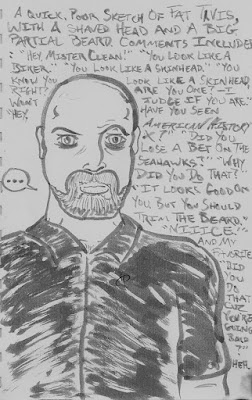 A QUICK, POOR SKETCH OF FAT TRVIS,
WITH A SHAVED HEAD AND A BIG
PARTIAL BEARD. COMMENTS INCLUDED:
"HEY MISTER CLEAN!" "YOU LOOK LIKE A
BIKER." "YOU LOOK LIKE A SKINHEAD." "YOU
KNOW YOU LOOK LIKE A SKINHEAD
RIGHT? ARE YOU ONE?-I
WON'T JUDGE IF YOU ARE."
"HEY, HAVE YOU SEEN
AMERICAN HISTORY
X?" "DID YOU
LOSE A BET ON THE
SEAHAWKS?" "WHY
DID YOU DO THAT?"
"IT LOOKS GOOD ON
YOU, BUT YOU SHOULD
TRIM THE BEARD."
"NIIICE."
AND MY
FAVORITE:
"DID
YOU
DO
THAT
CUZ
YOU'RE
GOING
BALD
?"
HEH.
...